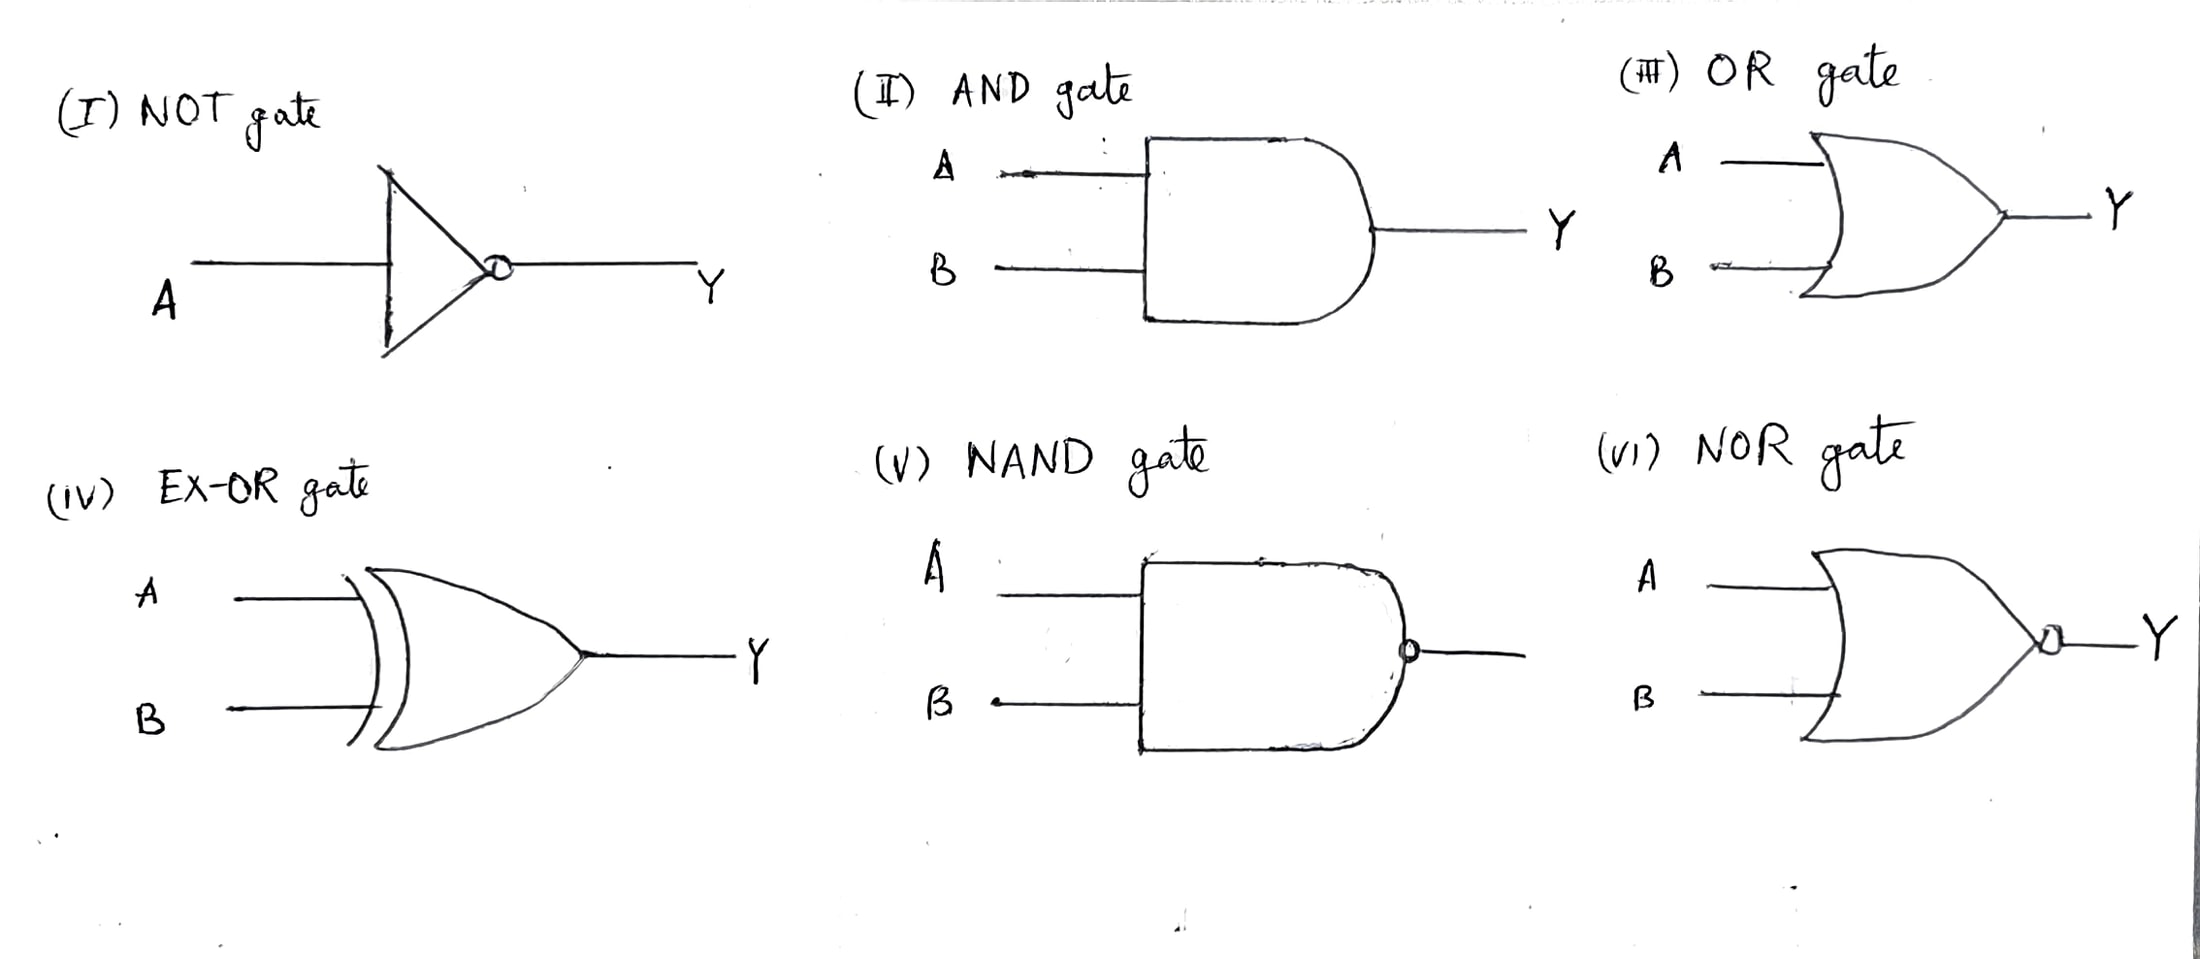 (I) NOT gate
A
Y
(II) AND gate
A
B
Y
(III) OR gate
A
B
Y
(iv) EX-OR gate
A
B
Y
(V) NAND gate
A
B
(vi) NOR gate
A
B
Y